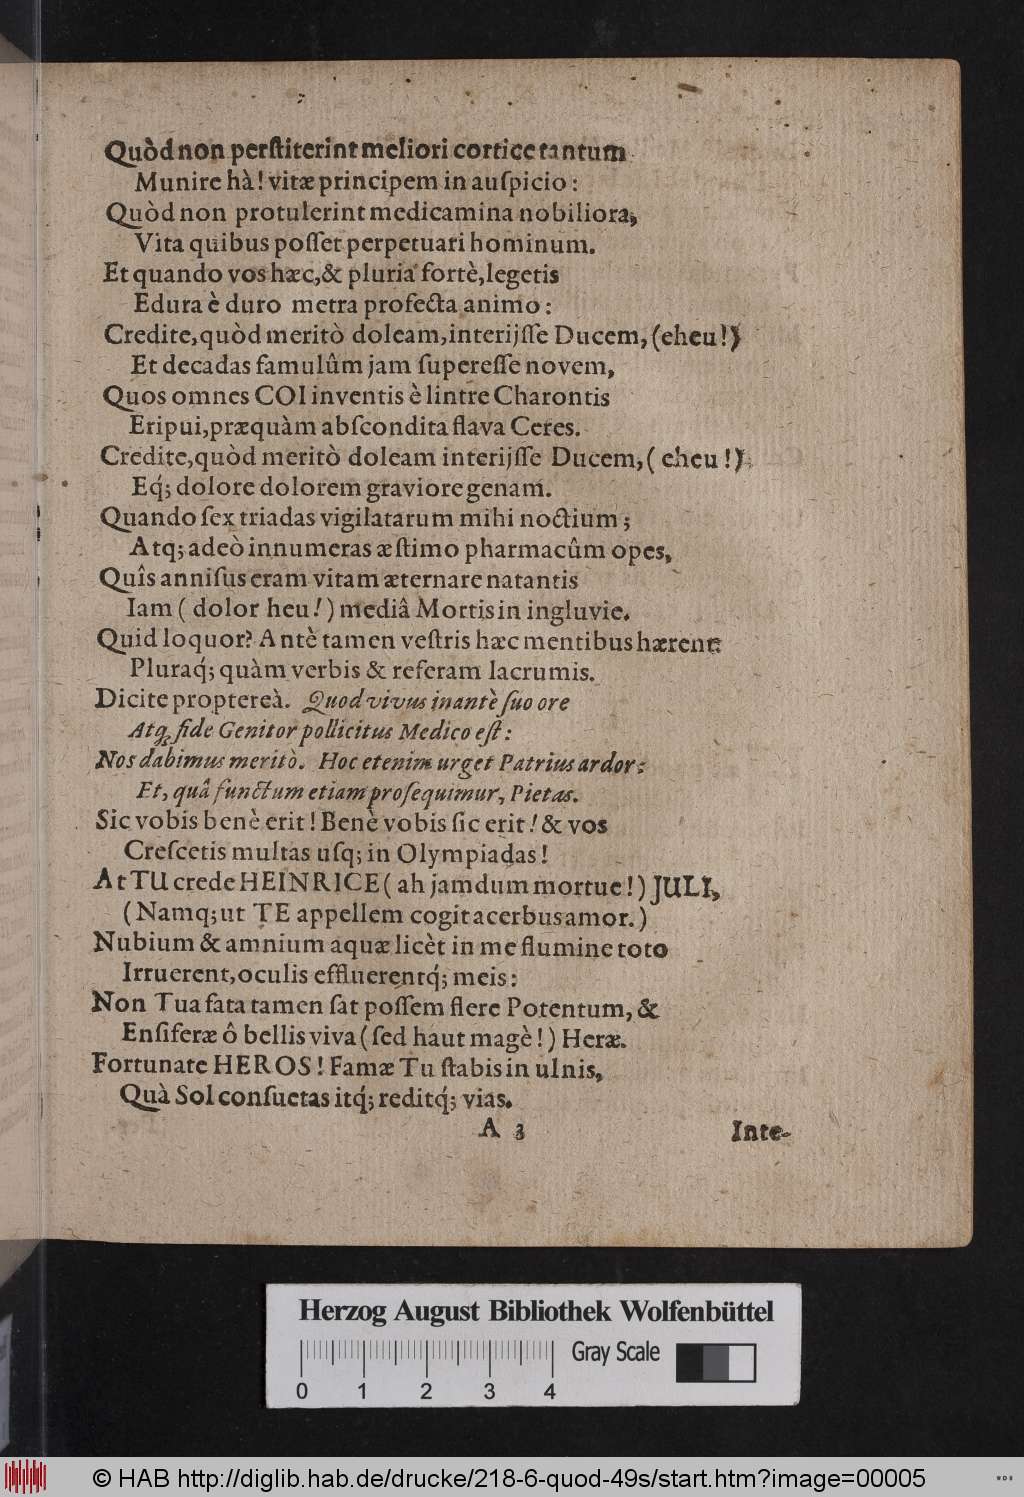 Quòd non perſtiterint meliori cortice tantum
Munire hà! vitæ principem in auſpicio:
Quòd non protulerint medicamina nobiliora,
Vita quibus poſſet perpetuari hominum.
Et quando vos hæc, & pluria fortè, legetis
Edura è duro metra profecta animo:
Credite, quòd meritò doleam, interijſſe Ducem, (eheu!)
Et decadas famulûm jam ſupereſſe novem,
Quos omnes COI inventis è lintre Charontis
Eripui, præquàm abſcondita flava Ceres.
Credite, quòd meritò doleam interijſſe Ducem, (eheu!)
Eq́; dolore dolorem graviore genam.
Quando ſex triadas vigilatarum mihi noctium;
Atq; adeò innumeras æſtimo pharmacûm opes,
Quîs anniſus eram vitam æternare natantis
Iam (dolor heu!) mediâ Mortis in ingluvie.
Quid loquor? Antè tamen veſtris hæc mentibus hærent:
Pluraq́; quàm verbis & referam lacrumis.
Dicite proptereà. Quod vivus inantè ſuo ore
Atq; fide Genitor pollicitus Medico eſt:
Nos dabimus meritò. Hoc etenim urget Patrius ardor:
Et, quâ functum etiam proſequimur, Pietas.
Sic vobis benè erit! Benè vobis ſic erit! & vos
Creſcetis multas uſq; in Olympiadas!
At TU crede HEINRICE (ah jamdum mortue!) JULI,
(Namq; ut TE appellem cogit acerbus amor.)
Nubium & amnium aquæ licèt in me flumine toto
Irruerent, oculis effluerentq́; meis:
Non Tua fata tamen ſat poſſem flere Potentum, &
Enſiferæ ô bellis viva (ſed haut magè!) Heræ.
Fortunate HEROS! Famæ Tu ſtabis in ulnis,
Quà Sol conſuetas itq́; reditq́; vias.
A 3 Inte-
Herzog August Bibliothek Wolfenbüttel
Gray Scale
0 1 2 3 4
© HAB http://diglib.hab.de/drucke/218-6-quod-49s/start.htm?image=00005